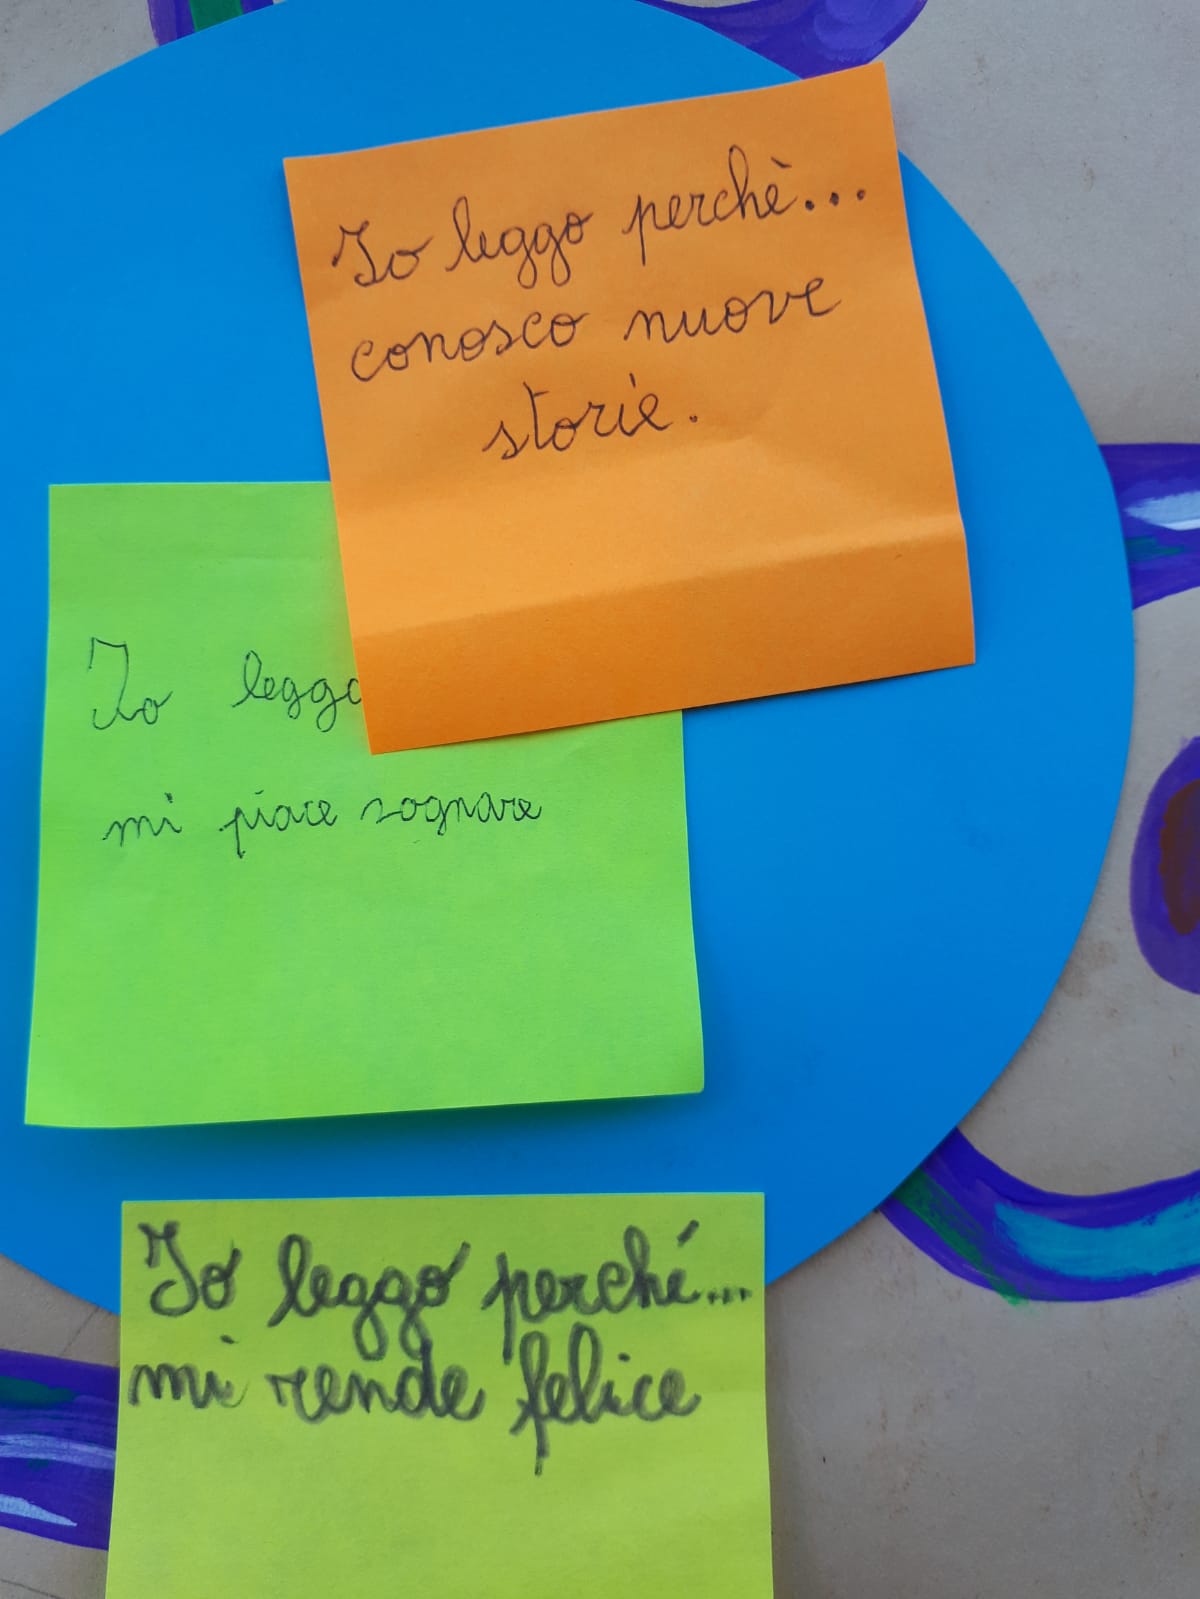 Io leggo perchè...
conosco nuove
storie.
Io leggo
mi piace sognare
Io leggo perché...
mi rende felice